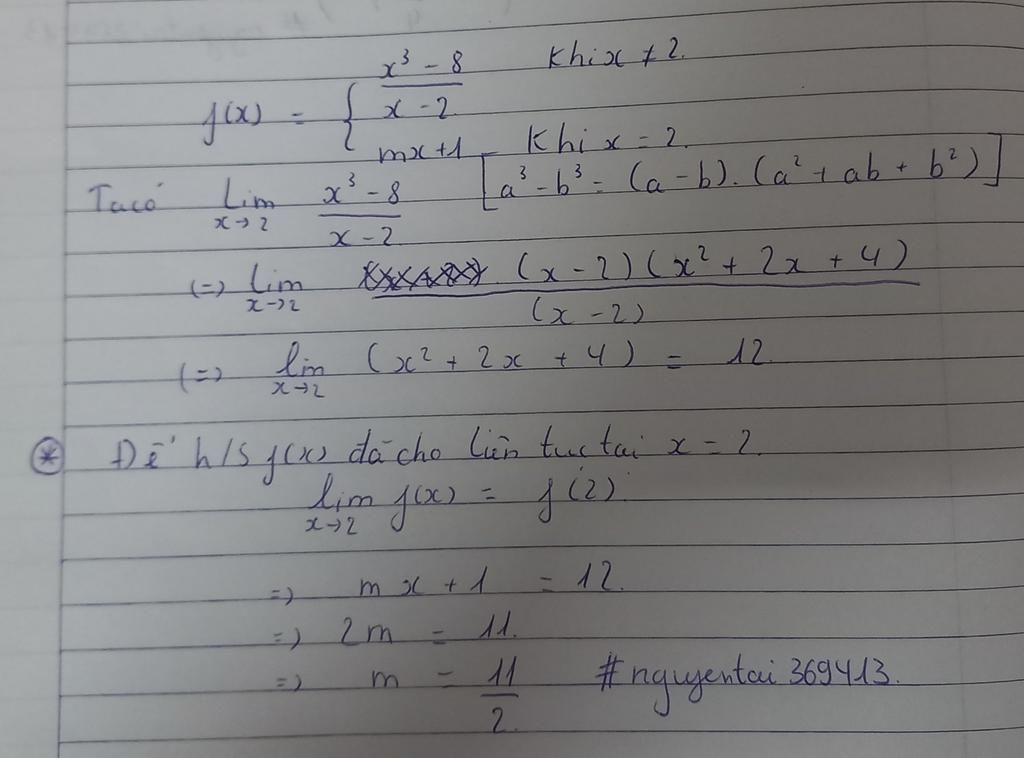 f(x) = { (x³ - 8)/(x - 2) khi x ≠ 2.
mx+1 khi x = 2.
Ta có lim x→2 (x³ - 8)/(x - 2) [a³ - b³ = (a - b).(a² + ab + b²)]
(=) lim x→2 (x - 2)(x² + 2x + 4)/(x - 2)
(=) lim x→2 (x² + 2x + 4) = 12.
* Để h/s f(x) đã cho liên tục tại x = 2.
lim x→2 f(x) = f(2).
=) mx + 1 = 12.
=) 2m = 11.
=) m = 11/2. #nguyentai369413.